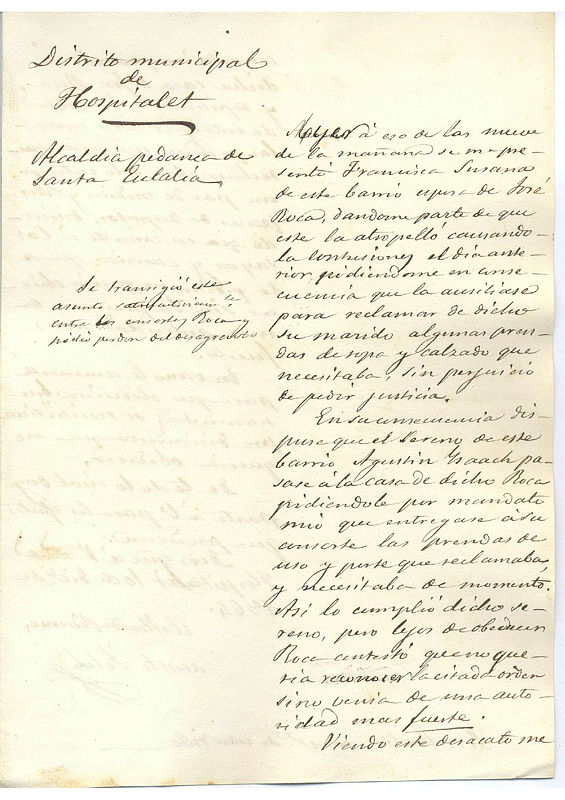 Distrito municipal
de
Hospitalet
Alcaldia pedanea de
Santa Eulalia
Se transigió este
asunto satisfactoriam.te
entre los consortes Roca y
pidió perdon del desagravio
Ayer à eso de las nueve
de la mañana se me pre-
sentó Francisca Susana
de este barrio esposa de José
Roca, dandome parte de que
este la atropelló causando-
la contusiones el dia ante-
rior, pidiendome en conse-
cuencia que la ausiliase
para reclamar de dicho
su marido algunas pren-
das de ropa y calzado que
necesitaba, sin perjuicio
de pedir justicia.
En su consecuencia dis-
puse que el Sereno de este
barrio Agustin Isaach pa-
sase à la casa de dicho Roca
pidiendole por mandato
mio que entregase à su
consorte las prendas de
uso y porte que reclamaba,
y necesitaba de momento.
Asi lo cumplió dicho se-
reno, pero lejos de obedecer
Roca contestó que no que-
ria reconocer la citada orden
sino venia de una auto-
ridad mas fuerte.
Viendo este desacato me